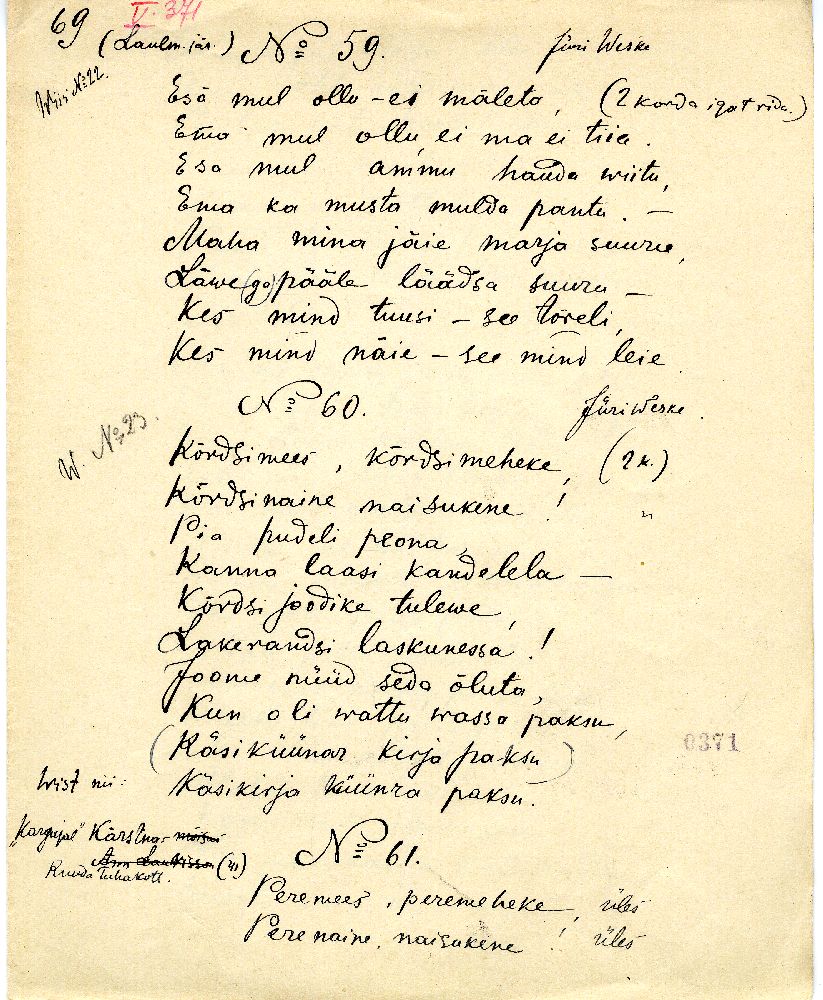 69 V. 371
(Laulm. jär.) No 59. Jüri Weske
Wiisi No 22.
Esä mul ollu - ei mäleta, (2 korda igat rida.)
Ema mul ollu, ei ma ei tiia.
Esa mul ammu hauda wiitu,
Ema ka musta mulda pantu. —
Maha mina jäie marja suuru,
Läwe(ge) pääle läädsa suuru —
Kes mind tuusi - see tõreli,
Kes mind näie - see mind leie
No 60. Jüri Weske.
W. No 23.
Kõrdsimees, kõrdsimeheke, (2 k.)
Kõrdsinaine naisukene! "
Pia pudeli peona,
Kanna laasi kandelela —
Kõrdsi joodike tulewe,
Lakerandsi laskunessa!
Joome nüüd seda õluta,
Kun oli wattu wassa paksu,
(Käsiküünar kirja paksu)
0371
Wist nii: Käsikirja küünra paksu.
"Kargujal" Kärstna- mõisni
No 61.
Ann (41)
Ruuda Tuhakott.
Peremees, peremeheke, üles
Perenaine, naisukene! üles